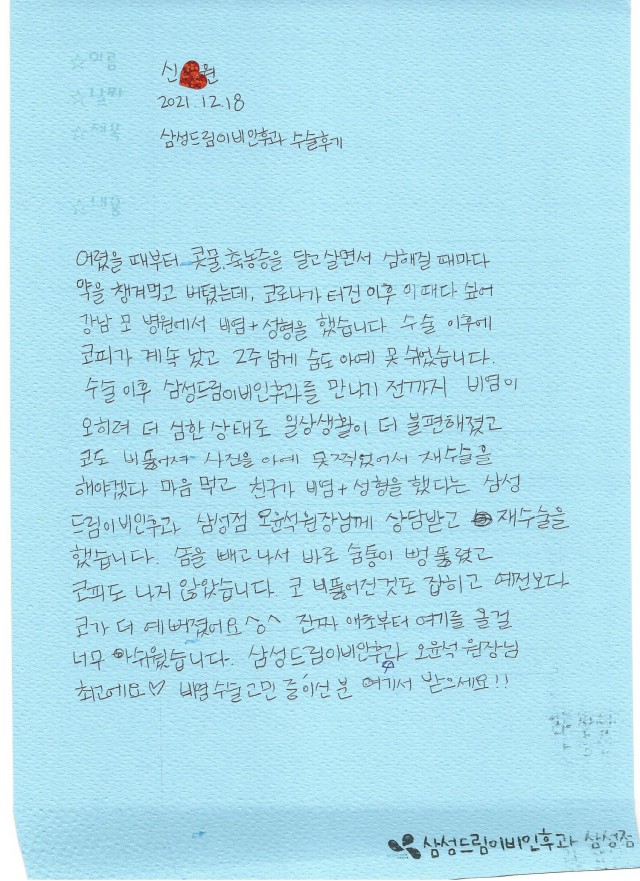 신 원
2021.12.18
삼성드림이비인후과 수술후기
어렸을 때부터 콧물,축농증을 달고살면서 심해질 때마다
약을 챙겨먹고 버텼는데, 코로나가 터진이후 이때다 싶어
강남 모 병원에서 비염+성형을 했습니다 수술 이후에
코피가 계속 났고 2주 넘게 숨도 아예 못 쉬었습니다.
수술 이후 삼성드림이비인후과를 만나기 전까지 비염이
오히려 더 심한 상태로 일상생활이 더 불편해졌고
코도 비뚫어져 사진을 아예 못찍었어서 재수술을
해야겠다 마음 먹고 친구가 비염+성형을 했다는 삼성
드림이비인후과 삼성점 오윤석원장님께 상담받고 재수술을
했습니다. 솜을 빼고나서 바로 숨통이 뻥 뚫렸고
코피도 나지 않았습니다. 코 비뚫어진것도 잡히고 예전보다
코가 더 예뻐졌어요^^ 진짜 애초부터 여기를 올걸
너무 아쉬웠습니다. 삼성드림이비인후과 오윤석 원장님
최고에요♡ 비염수술고민 중이신 분 여기서 받으세요!!
삼성드림이비인후과 삼성점